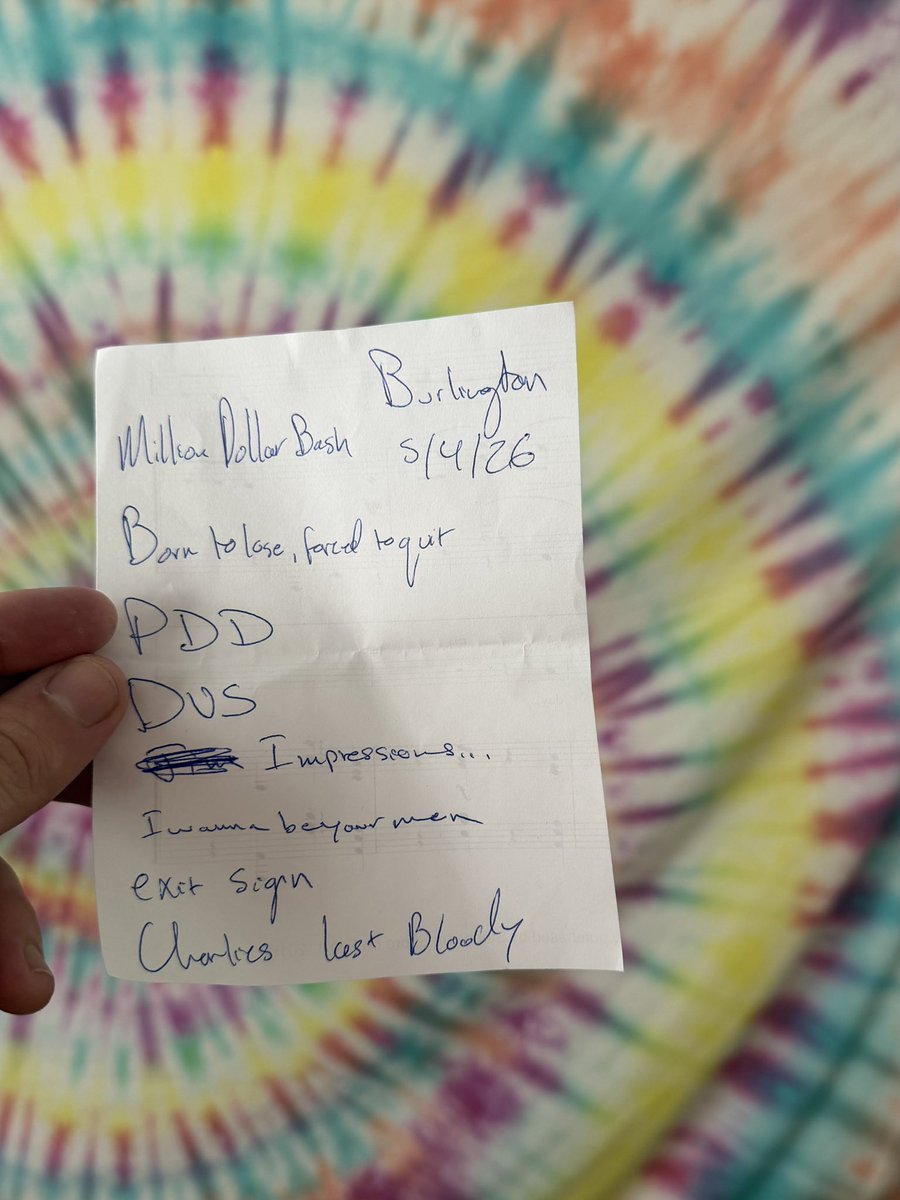 Burlington
Million Dollar Bash 5/4/26
Born to lose, forced to quit
PDD
DUS
Impressions...
I wanna be your man
exit sign
Charlies last Bloody